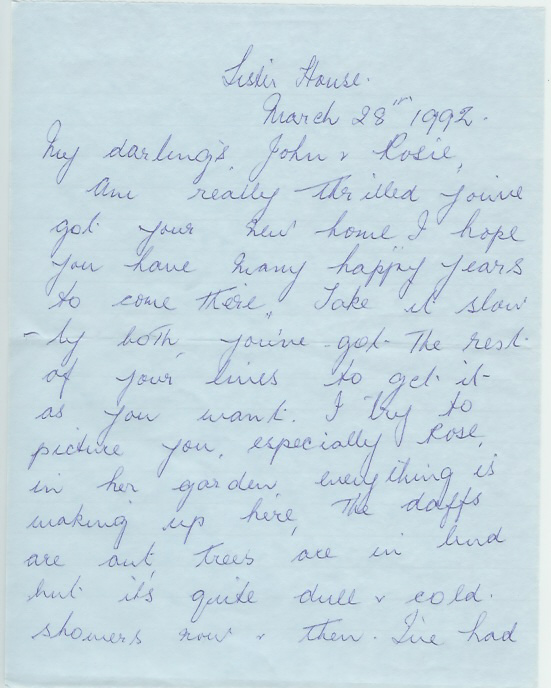 Lister House.
March 28th 1992.
My darlings, John & Rosie,
Am really thrilled you've
got your new home I hope
you have many happy years
to come there, Take it slow
-ly both, you've got the rest
of your lives to get it
as you want. I try to
picture you, especially Rose,
in her garden, everything is
waking up here, The daffs
are out, trees are in bud
but it's quite dull & cold.
showers now & then. I've had